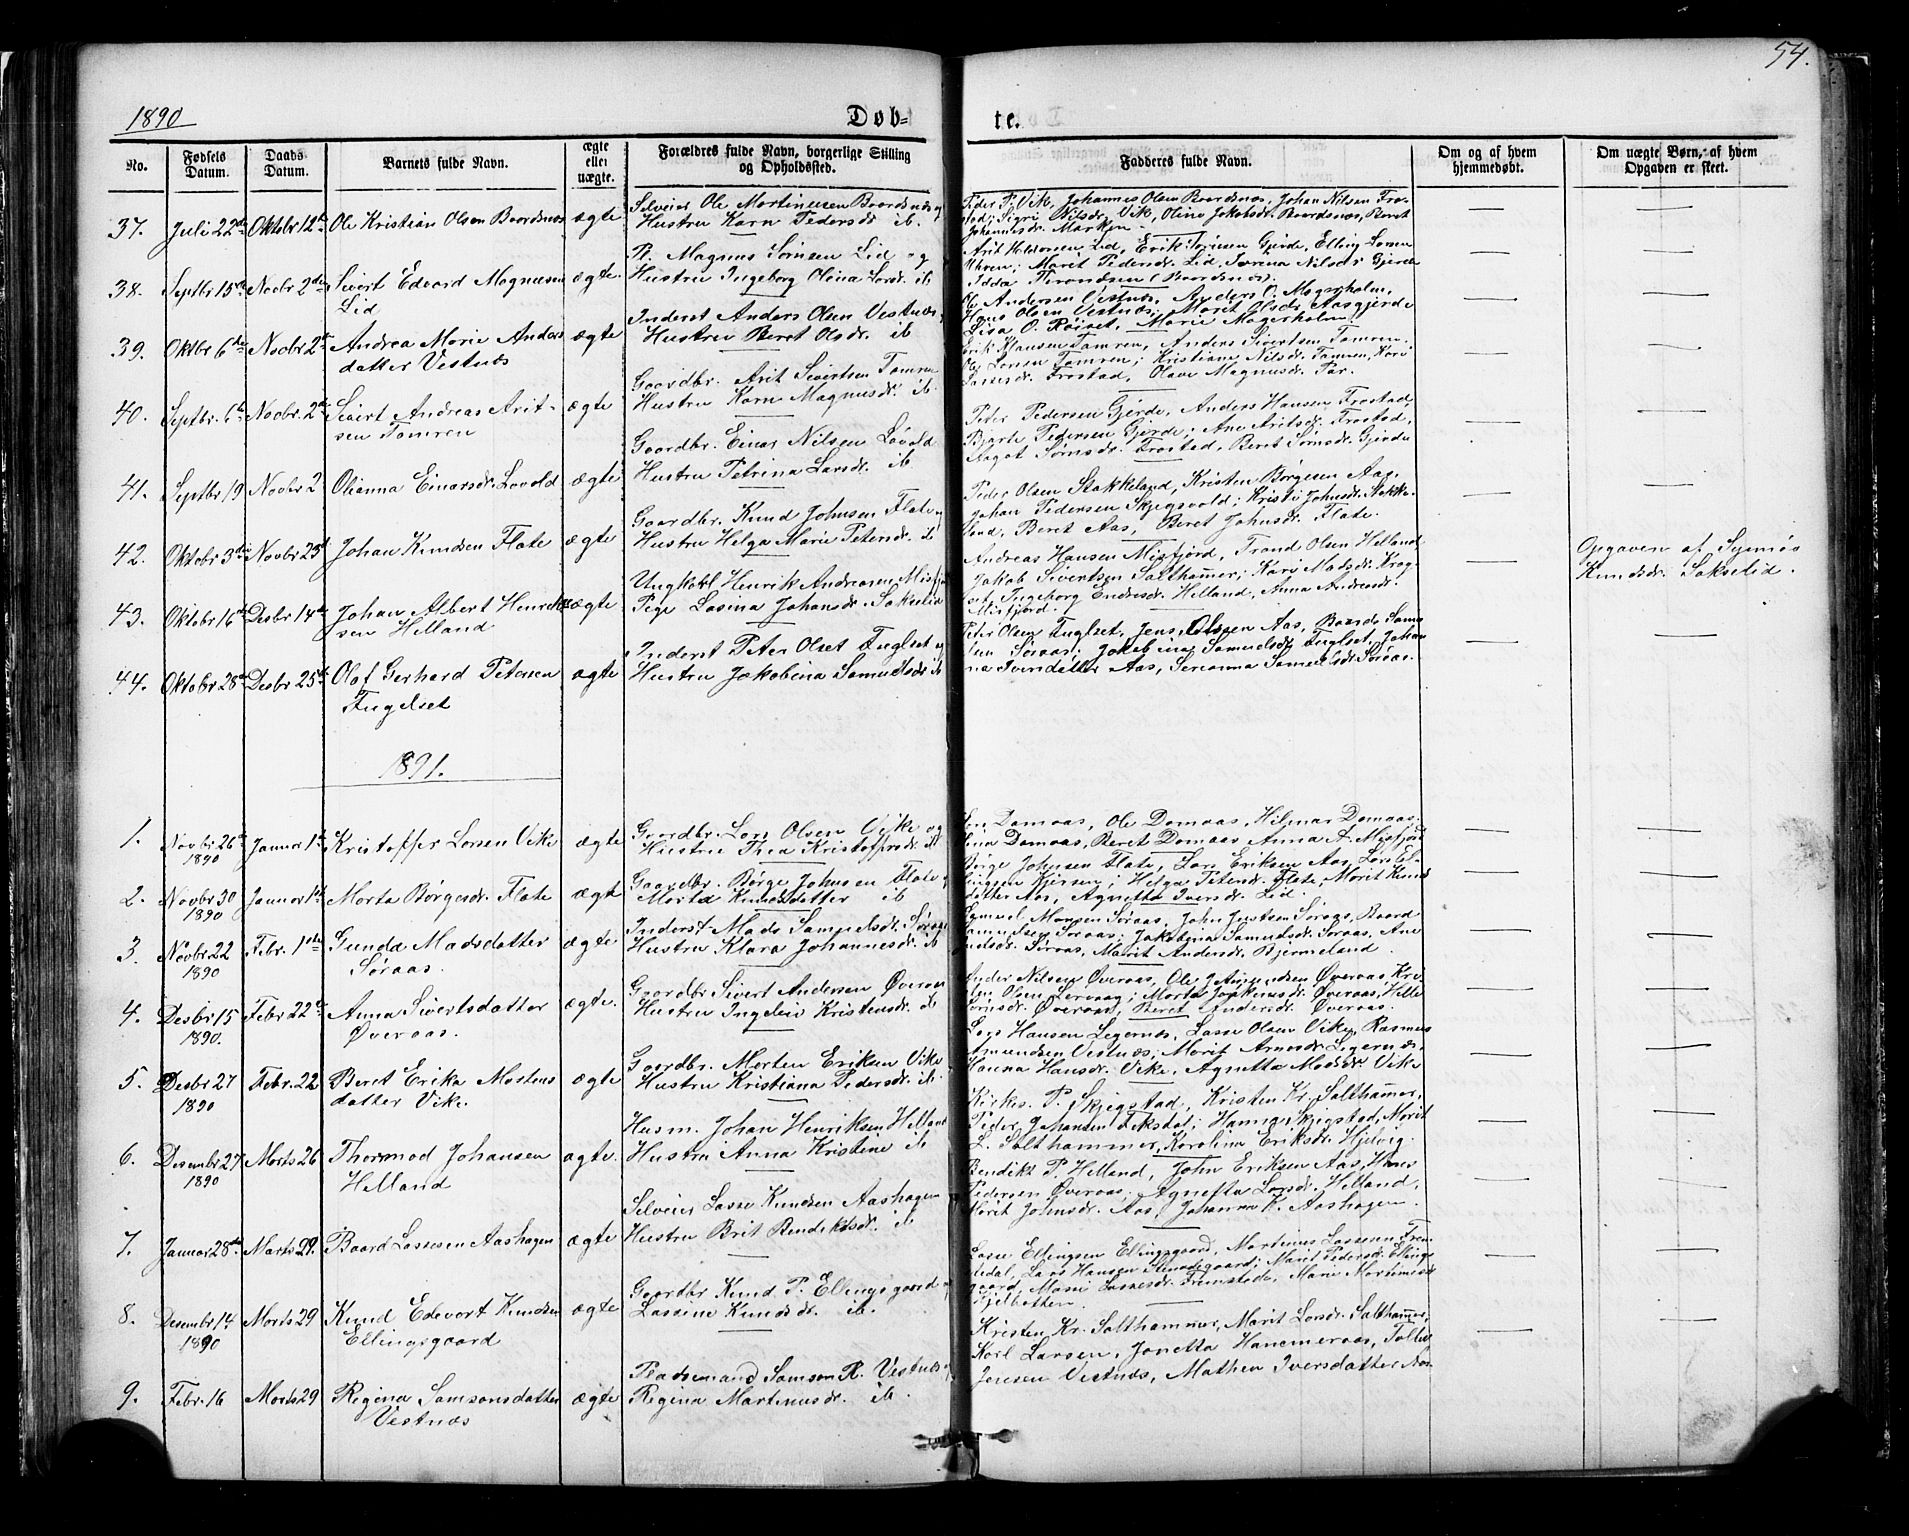 54.
1890
Døb-
te.
No.
Fødsels Datum.
Daabs Datum.
Barnets fulde Navn.
ægte eller uægte.
Forældres fulde Navn, borgerlige Stilling og Opholdssted.
Fadderes fulde Navn.
Om og af hvem hjemmedøbt.
Om uægte Børn, af hvem Opgaven er skeet.
37. Juli 22de Oktobr 12te Ole Kristian Olsen Baardsnæs ægte
Selveier Ole Martinusen Baardsnæs og
Hustru Karn Pedersdr ib.
Peder P. Vik, Johannes Olsen Baardsnæs, Johan Nilsen Fro-
stad; Sigri Nilsdr. Vik, Oline Jakobsdr Baardsnæs, Beret
Johannesdr. Marken
38. Septbr 15de Novbr 2den Sivert Edvard Magnussen ægte
Lid
B. Magnus Sørnsen Lid og
Hustru Ingeborg Olina Larsdr. ib
Arit Lid, Erik Gjerde, Elling Larsen
Marit Pedersdr. Lid, Nilsdr Gjerde
Baardsnæs
39. Oktbr 6te Novbr 2de Andrea Marie Anders ægte
datter Vestnæs
Inderst Anders Olsen Vestnæs,
Hustru Beret Olsdr. ib
Ole Andersen Vestnæs, Anders O. Magerholm,
Hans Olsen Vestnæs, Marit Olsdr Aasgjerde
Lisa O. Røiset, Marie Magerholm
40. Septbr. 6te Novbr. 2de Sivert Andreas Arit- ægte
sen Tomren
Gaardbr. Arit Sivertsen Tomren
Hustru Karn Magnusdr. ib.
Erik Hansen Tomren, Anders Sivertsen Tomren
Ole Larsen Tomren; Kristiane Nilsdr. Tomren, Kari
Lassesdr. Frostad, Olave Magnusdr. Par.
41. Septbr 19 Novbr 2 Olianna Einarsdr. Lovold ægte
Gaardbr. Einar Nilsen Lovold
Hustru Petrina Larsdr. ib
Peder Pedersen Gjerde, Anders Hansen Frostad,
Bjarte Pedersen Gjerde; Ane Aritsdr. Frostad,
Sørnsdr. Frostad, Beret Sørnsdr. Gjerde
42. Oktobr 3die Novbr 23de Johan Knudsen Flate ægte
Gaardbr. Knud Johnsen Flate og
Hustru Helga Marie Petersdr. ib
Peder Olsen Stokkeland, Kristen Børgesen Aas,
Johan Pedersen Skjegsvold; Kristi Johnsdr. Stokke-
land, Beret Aas, Beret Johnsdr. Flate.
43. Oktobr 16de Desbr 14de Johan Albert Henrik uægte
sen Helland
Ungkarl Henrik Andreasen Misfjord
Pige Lasina Johansdr. Sakselid
Andreas Hansen Misfjord, Trond Olsen Helland
Jakob Sivertsen Salthammer; Kari Madsdr. Krog-
set, Ingeborg Endresdr. Helland, Anna Andreasdr.
Misfjord.
Opgaven af
Knudsdr. Sakselid.
44. Oktobr 28de Desbr 25de Olaf Gerhard Petersen ægte
Fugelset
Inderst Peter Olset Fuglset og
Hustru Jakobina Samuelsdr ib
Peter Olsen Fuglset, Jens Olsen Aas, Baard Samu-
elsen Søraas; Jakobina Samuelsdr. Fuglset, Johan
na Iversdatter Aas, Sereanna Samuelsdr. Søraas.
1891.
1. Novbr 26de Januar 1ste Kristoffer Larsen Vike ægte
1890
Gaardbr. Lars Olsen Vike og
Hustru Thea Kristoffersdr. ib
Domaas, Ole Domaas, Hilmar Domaas,
Domaas, Beret Domaas Anna A. Misfjord
2. Novbr 30 Januar 1ste Marta Børgesdr. Flate ægte
1890
Gaardbr. Børge Johnsen Flate og
Marta Knudsdatter ib
Børge Johnsen Flate, Lars Eriksen Aas, Lars El-
lingsen Kjersen; Helga Petersdr. Flate, Marit Knuds
datter Aas, Agnetta Iversdr. Lid
3. Novbr 22 Febr. 1ste Gunda Madsdatter ægte
1890 Søraas.
Inderst Mads Samuelsen Søraas
Hustru Klara Johannesdr. ib
Samuel Monsen Søraas, John Justsen Søraas, Baard
Samuelsen Søraas; Jakobina Samuelsdr. Søraas, Ane
Søraas, Marit Andersdr. Bjermeland
4. Desbr 15 Febr 22de Anna Sivertsdatter ægte
1890. Øveraas.
Gaardbr Sivert Andersen Øveraas
Hustru Ingeleiv Kristensdr. ib
Peder Nilsen Øveraas, Ole Øveraas, Kri-
sten Olsen Lervaag; Marta Øveraas,
Øveraas, Beret Andersdr. Øveraas.
5. Desbr 27 Febr. 22 Beret Erika Mortens ægte
1890 datter Vike.
Gaardbr. Morten Eriksen Vike
Hustru Kristiana Pedersdr. ib.
Lars Hansen Legernæs, Lasse Olsen Vike, Rasmus
Amundsen Vestnæs; Marit Arnesdr. Legernæs,
Hanna Hansdr. Vike, Agnetta Madsdr. Vike
6. Desembr 27 Marts 26 Thormod Johansen ægte
1890 Helland
Husm. Johan Henriksen Helland
Hustru Anna Kristine ib
Kirkes. P. Skjegstad, Kristen Kr. Salthammer,
Peder Johansen Teksdal; Hanna Skjegstad, Marit
L. Salthammer, Karolina Eriksdr. Hjelvig.
7. Januar 28de Marts 29. Baard Lassesen Aashagen ægte
Selveier Lasse Knudsen Aashagen
Hustru Brit Bendiktsdr. ib
Bendikt P. Helland, John Eriksen Aas, Hans
Pedersen Øveraas; Agnetta Larsdr. Helland,
Marit Johnsdr. Aas, Johanna K. Aashagen.
8. Desembr 14 Marts 29 Knud Edevart Knudsen ægte
1890 Ellingsgaard
Gaardbr Knud P. Ellingsgaard og
Lassine Knudsdr. ib.
Lasse Ellingsen Ellingsgaard, Martinus Lassesen Frem-
stedal, Lars Hansen; Marit Pedersdr. Ellings-
gaard, Lassesdr. Fremstedal, Marie Martinusdr
Hjelbotten
9. Febr. 16 Marts 29 Regina Samsonsdatter ægte
Vestnæs
Pladsemand Samson R. Vestnæs og
Regina Martinusdr. ib.
Kristen Kr. Salthammer, Marit Larsdr. Salthammer,
Karl Larsen, Jonetta Hammeraas,
Jensen Vestnæs, Mathea Iversdatter